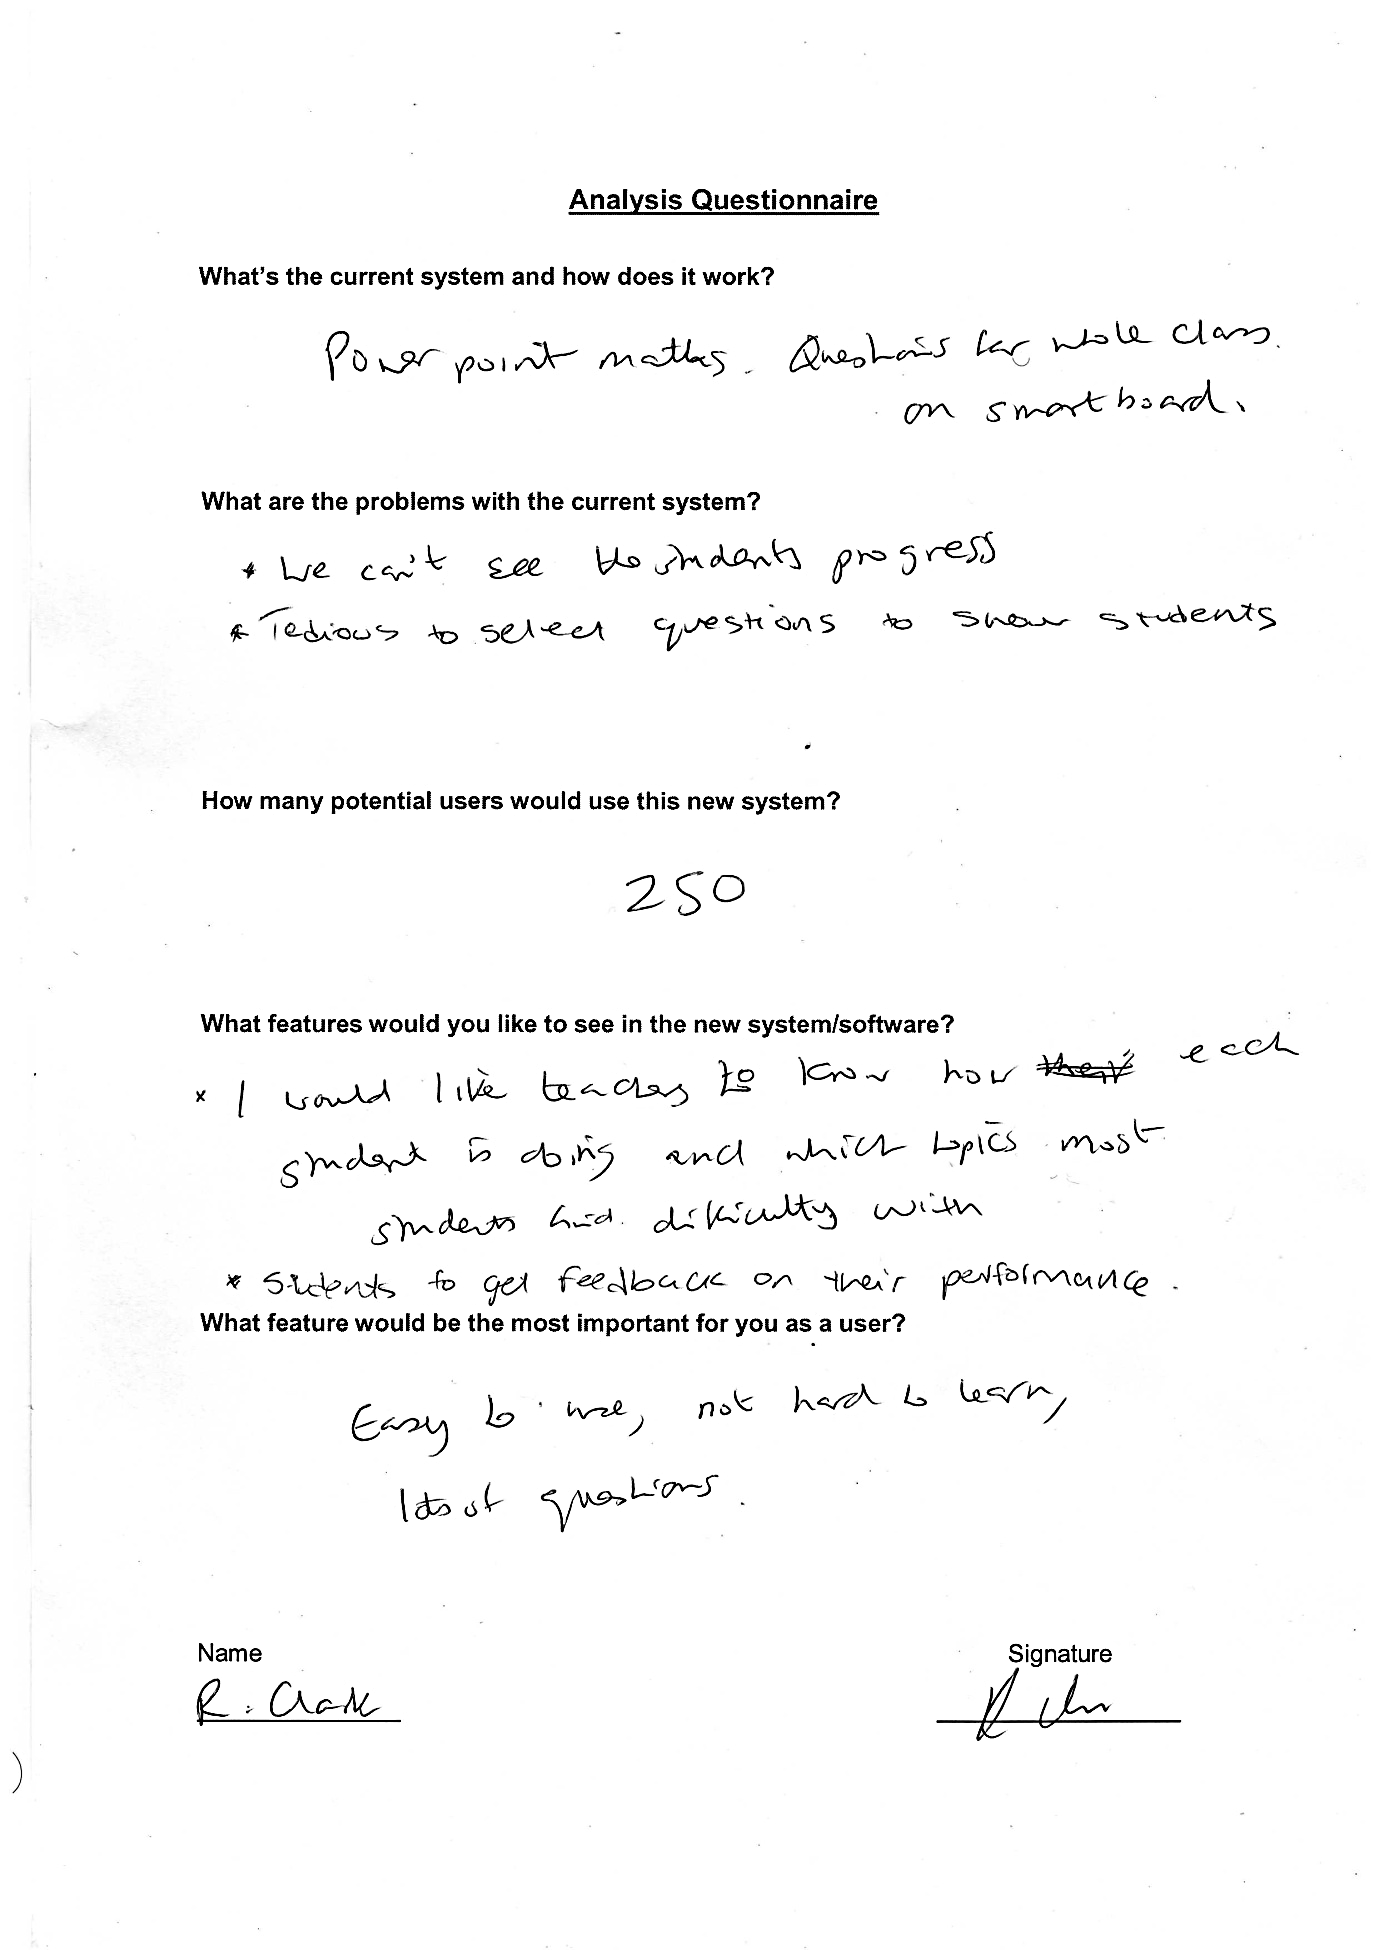 Analysis Questionnaire
What's the current system and how does it work?
Power point maths. Questions for whole class.
on smart board.
What are the problems with the current system?
* We can't see the students progress
* Tedious to select questions to show students
How many potential users would use this new system?
250
What features would you like to see in the new system/software?
* I would like teachers to know how they each
student is doing and which topics most
students had difficulty with
* Students to get feedback on their performance.
What feature would be the most important for you as a user?
Easy to use, not hard to learn,
lots of questions.
Name
Signature
R. Clark